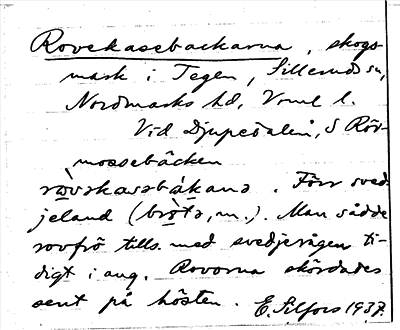 Rovekasebackarna, skogs-
mark i Tegen, Sillerud sn,
Nordmarks hd, Vrml l.
Vid Djupedalen, S Rör-
mossebäcken
Förr sved
jeland (, m.). Man sådde
rovfrö tills. med svedjerågen ti-
digt i aug. Rovorna skördades
sent på hösten. E. Silfors 1937.